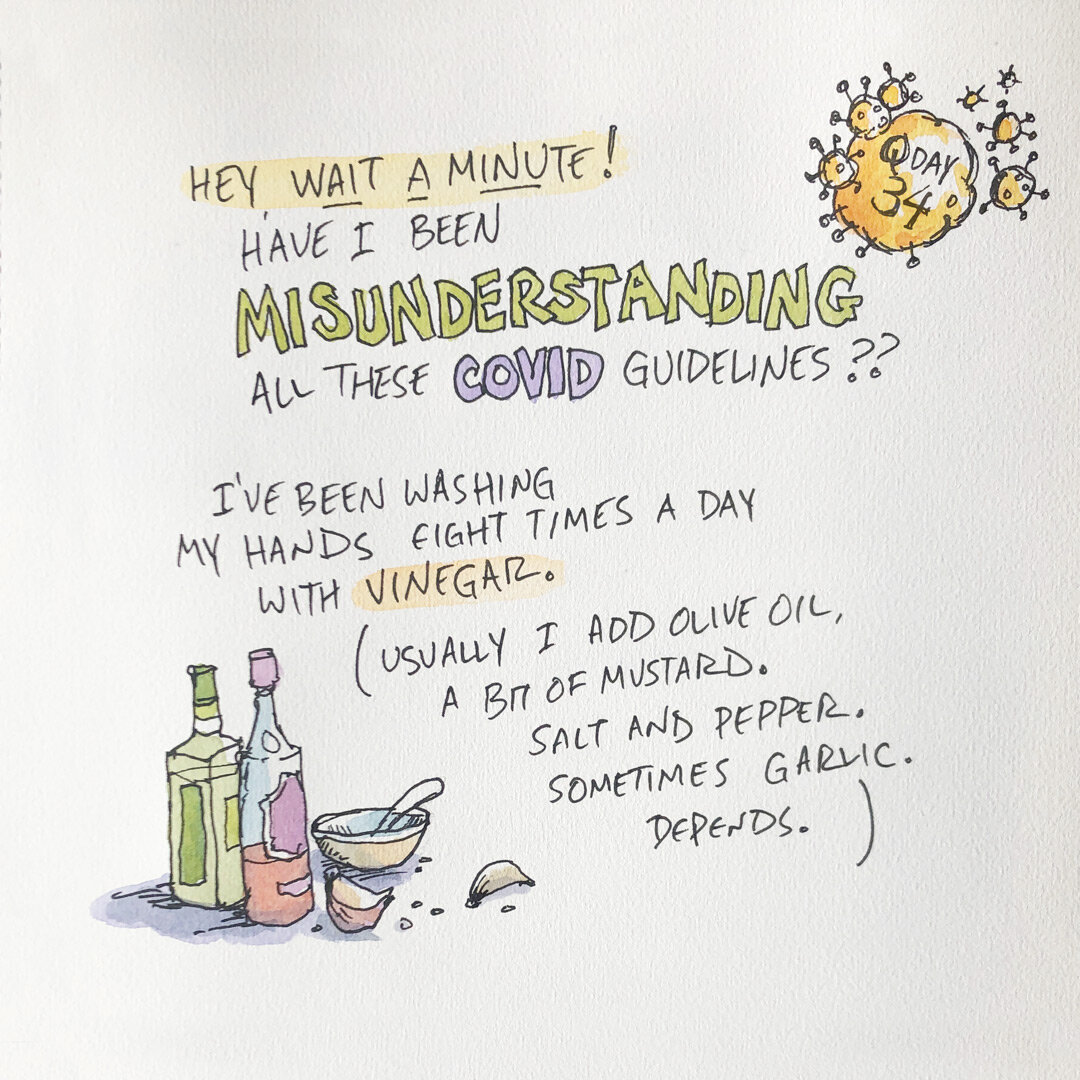 QDAY
34
HEY WAIT A MINUTE!
HAVE I BEEN
MISUNDERSTANDING
ALL THESE COVID GUIDELINES??
I'VE BEEN WASHING
MY HANDS EIGHT TIMES A DAY
WITH VINEGAR.
(USUALLY I ADD OLIVE OIL,
A BIT OF MUSTARD.
SALT AND PEPPER.
SOMETIMES GARLIC.
DEPENDS.)